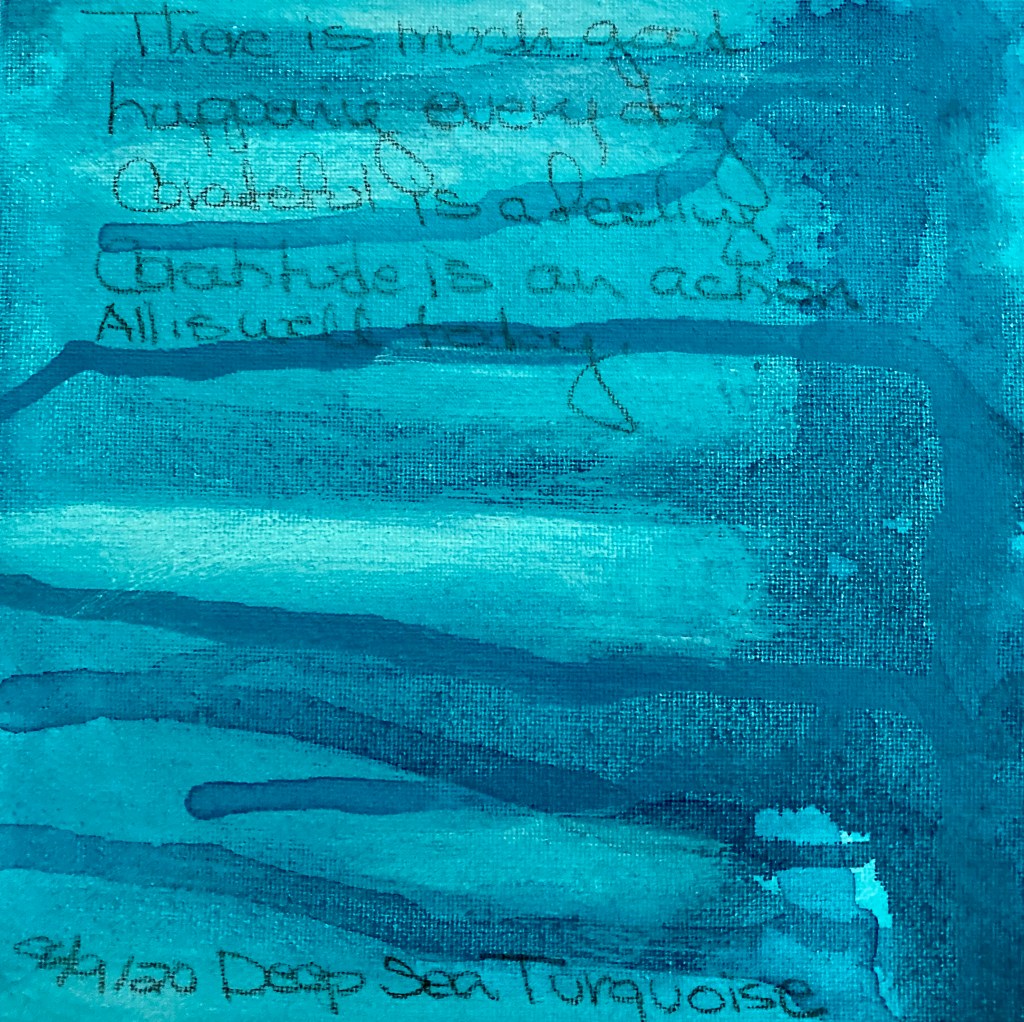 There is much good
happening every day
Grateful is a feeling
Gratitude is an action
All is well today.
/9/20 Deep Sea Turquoise